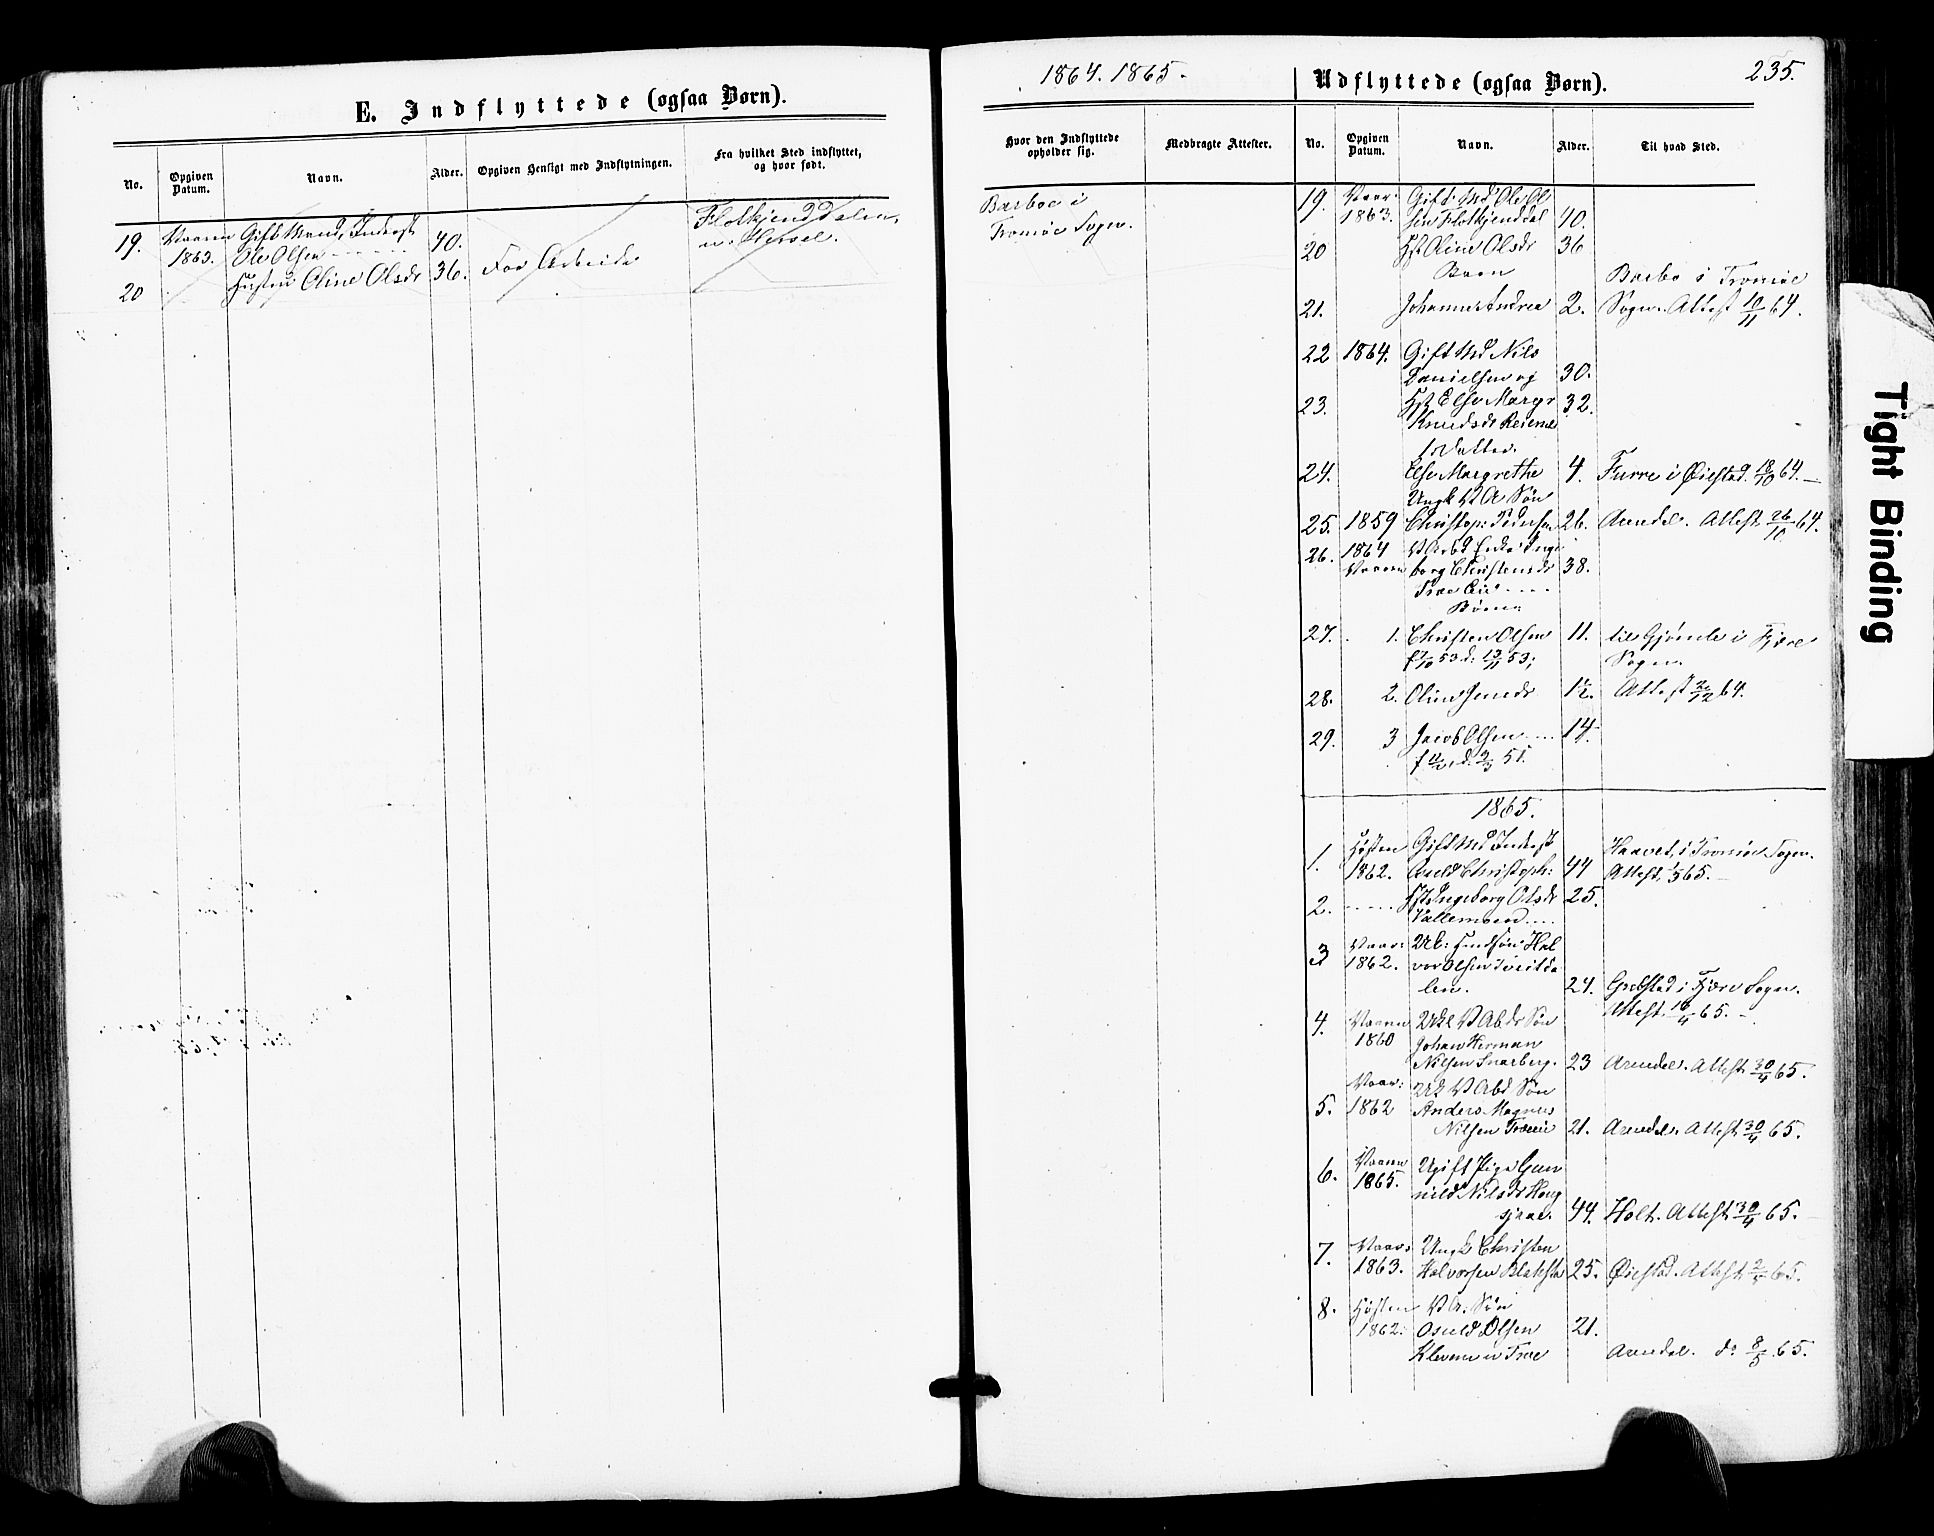 E. Indflyttede (ogsaa Børn).
No.
Opgiven Datum.
Navn.
Alder.
Opgiven Hensigt med Indflytningen.
Fra hvilket Sted indflyttet, og hvor født.
19. Vaaren Gift Mand, Inderst
1863. Ole Olsen - - - - 40.
20 Hustru Oline Olsdr 36. For Arbeide
1864. 1865.
235.
Hvor den Indflyttede opholder sig.
Medbragte Attester.
Barboe i
Tromøe Sogn.
Udflyttede (ogsaa Børn).
No.
Opgiven Datum.
Navn.
Alder.
Til hvad Sted.
19. Vaar: Gift Md Ole Ol
1863. sen Flotkjenddal 40.
20 Hst Oline Olsdr 36
Barn
Barbo i Tromøe
21. Johanne Andrea 2. Sogn. Attest 10/11 64.
22 1864. Gift Md Nils
Danielsen og 30.
23. Hst Else Margr 32.
Knudsdr
1 Datter.
24. Else Margrethe 4. Furre i Øiestad. 18/10 64. —
Ungk V A Søn
25. 1859 Christop: Pedersen 26. Arendal. Attest 26/10 64.
26. 1864 Enke Inge
Vaaren borg Christensdr 38.
Børn
27. 1. Christen Olsen 11. til i Fjære
f 7/10 53 d: 13/11 53; Sogn.
28. 2. Oline Jensdr 1½. Attest 2/12 64.
29. 3 Jacob Olsen - - - 14.
51.
1865.
1. Høsten Gift Md Inderst Haavet, i Tromøe Sogn.
1862. Christoph: 44 Attest 65. —
2. - - - - - Hst Ingeborg Olsdr 25.
Vallemoen - - -
3 Vaar: Hal
1862. vor Olsen Tveitda
len. 24. Grebstad i Fjære Sogn.
Attest 16/4 65. —
4. Vaaren Søn
1860 Johan Herman
Nilsen Snarberg. 23 Arendal. Attest 30/4 65.
Vaar: Søn
5. 1862 Anders Magnus
Nilsen 21. Arendal. Attest 30/4 65.
6. Vaaren Ugift Pige Gun
1865. nild Nilsdr Houg
44. Holt. Attest 30/4 65.
7. Vaar: Ungk Christen
1863. Halvorsen Blaksta 25. Øiestad. Attest 65.
8. Høsten V A. Søn
1862: Osuld Olsen 21.
Arendal. do 8/5 65.
Tight Binding